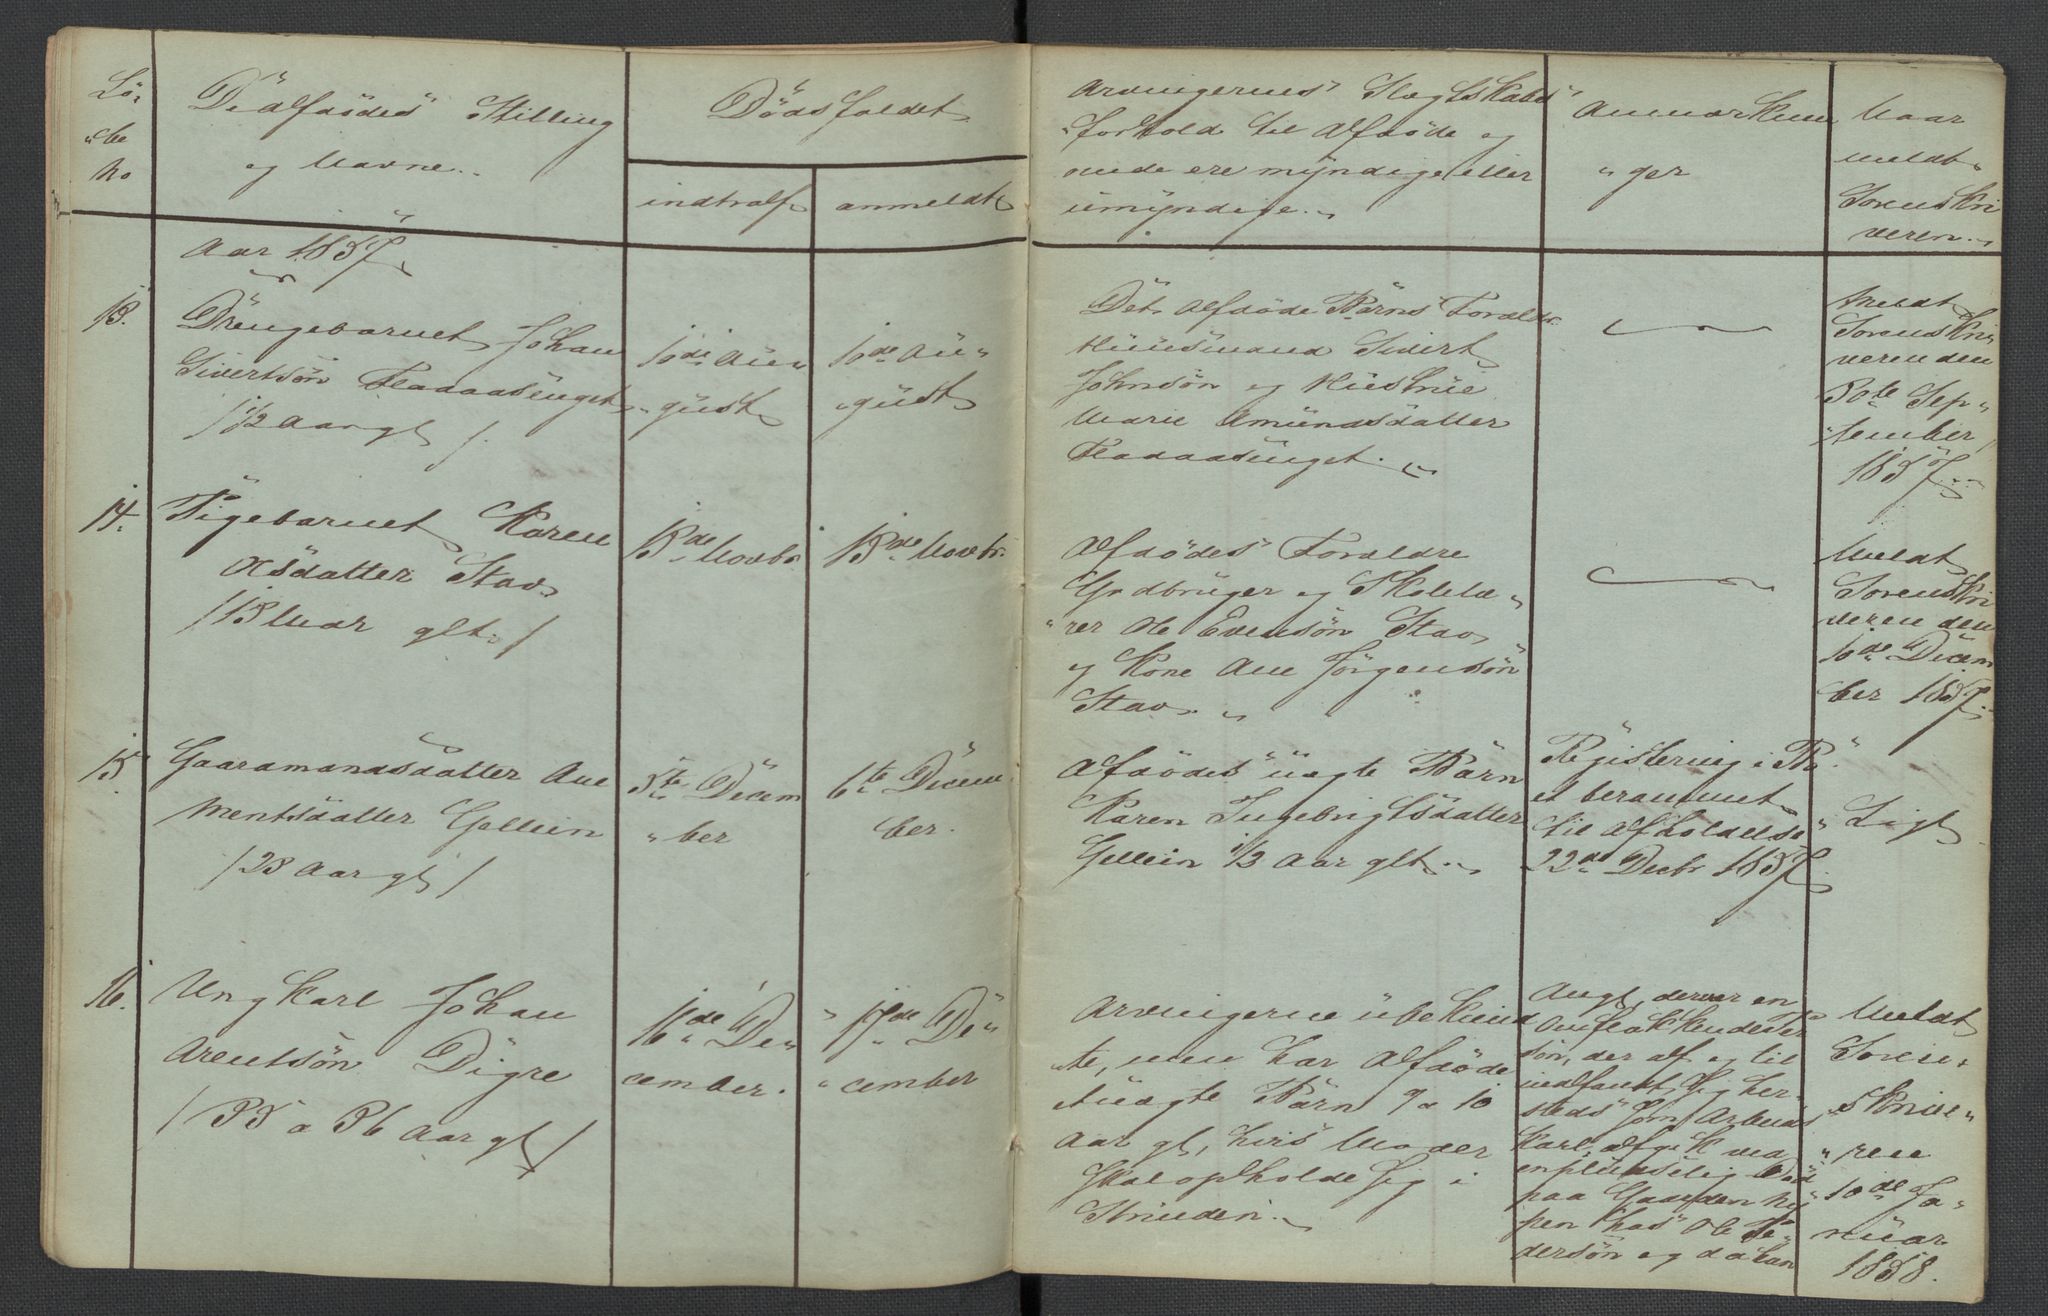 Lö-
"be
No
De Afdödes Stilling
og Navne.
Dödsfaldet
indtraf
anmeldt
Arvingernes Slægtskabs
"forhold til Afdöde og
om de ere myndige eller
umyndige.
Anmærknin
"ger
Naar
meldt
Sorenskri
veren.
Aar 1857
13.
Drengebarnet Johan
Sivertsön Fladaasenget
/ 1/2 Aar gl /
10de Au"
"gust
10de Au"
"gust
Det Afdöde Barns Forældr.
Huusmand Sivert
Johnsön og Huskone
Marie Amundsdatter
Fladaasenget.
Meldt
Sorenskri"
veren den
30te Sep"
"tember
1857.
14.
Pigebarnet Karen
Olsdatter Stav
/ 13 Uger glt /
13de Novbr
13de Novbr.
Afdödes Forældre
Gaardbruger og Skolelæ"
"rer Ole Evensön Stav
og Kone Ane Jörgensön
Stav.
Meldt
Sorenskri
veren den
10de Decem
ber 1857.
15.
Gaardmandsdatter Ane
Mentsdatter Gellein
/ 28 Aar gl /
5te Decem
"ber
6te Decem
ber.
Afdödes uægte Barn
Karen Ingebrigtsdatter
Gellein 1/2 Aar glt.
Registrering i Bo
et berammet
til Afholdelse
22de Decbr 1857.
Ligt
16.
Ungkarl Johan
Arentsön Digre
/ 35 a 36 Aar gl /
16de De"
cember.
" 17de De"
" cember
Arvingerne ubekiend
te, men har Afdöde
et uægte Barn 9 a 10
Aar gl, hvis Moder
skal opholde sig i
Strinden.
Angl, derver en
Omflakkende Per
sön, der af og til
indfandt sig her-
steds som Arbeids
karl, afgik ved
en pludselig Död
paa Gaarden
hos Ole Pe"
dersön og da han
Meldt
Soren"
skrive"
"ren
10de Ja"
nuar
1858.